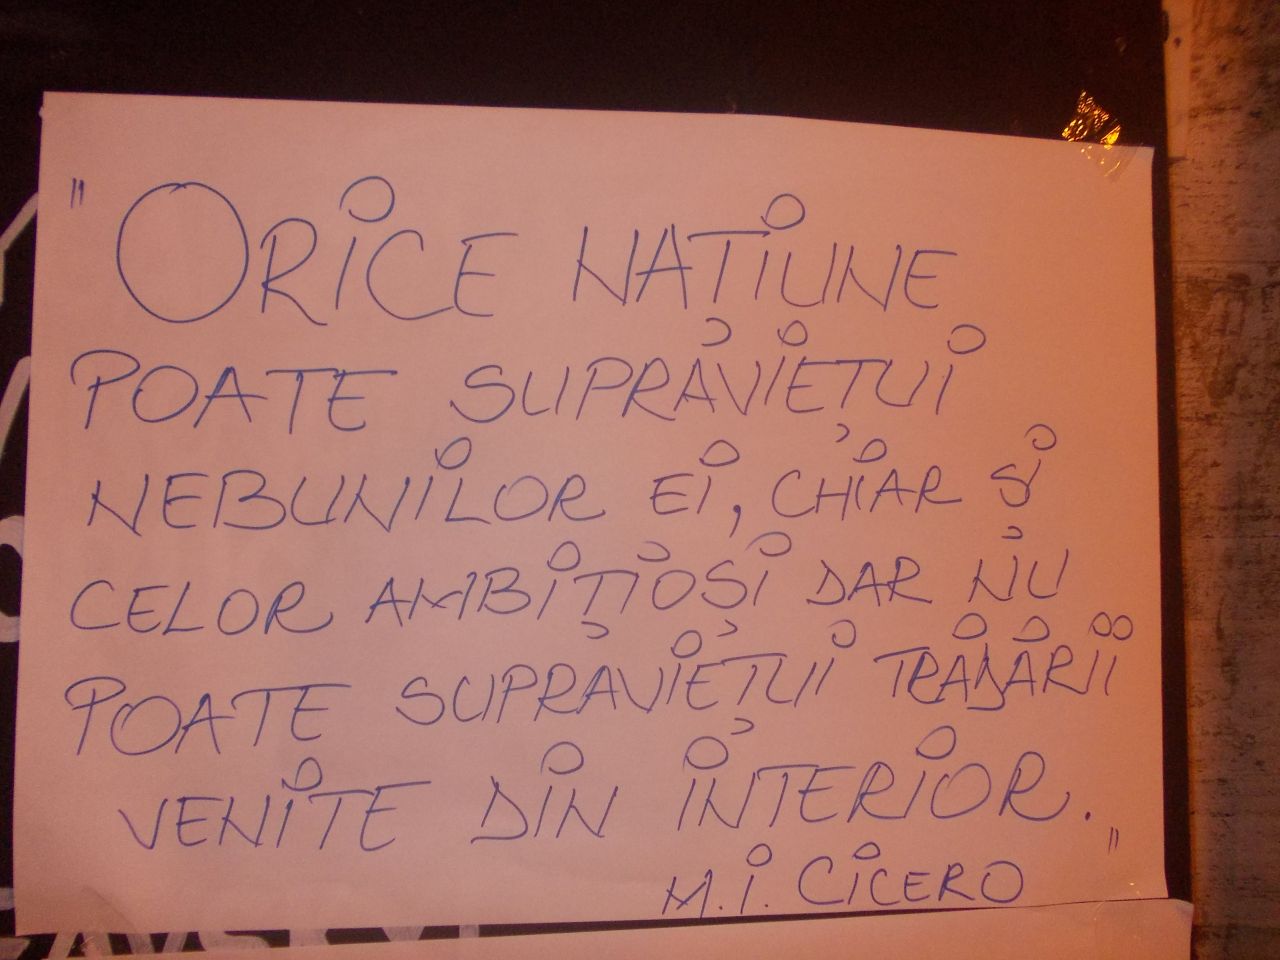 " ORICE NAȚIUNE
POATE SUPRAVIEȚUI
NEBUNILOR EI, CHIAR ȘI
CELOR AMBIȚIOȘI DAR NU
POATE SUPRAVIEȚUI TRĂDĂRII
VENITE DIN INTERIOR. "
M.I. CICERO